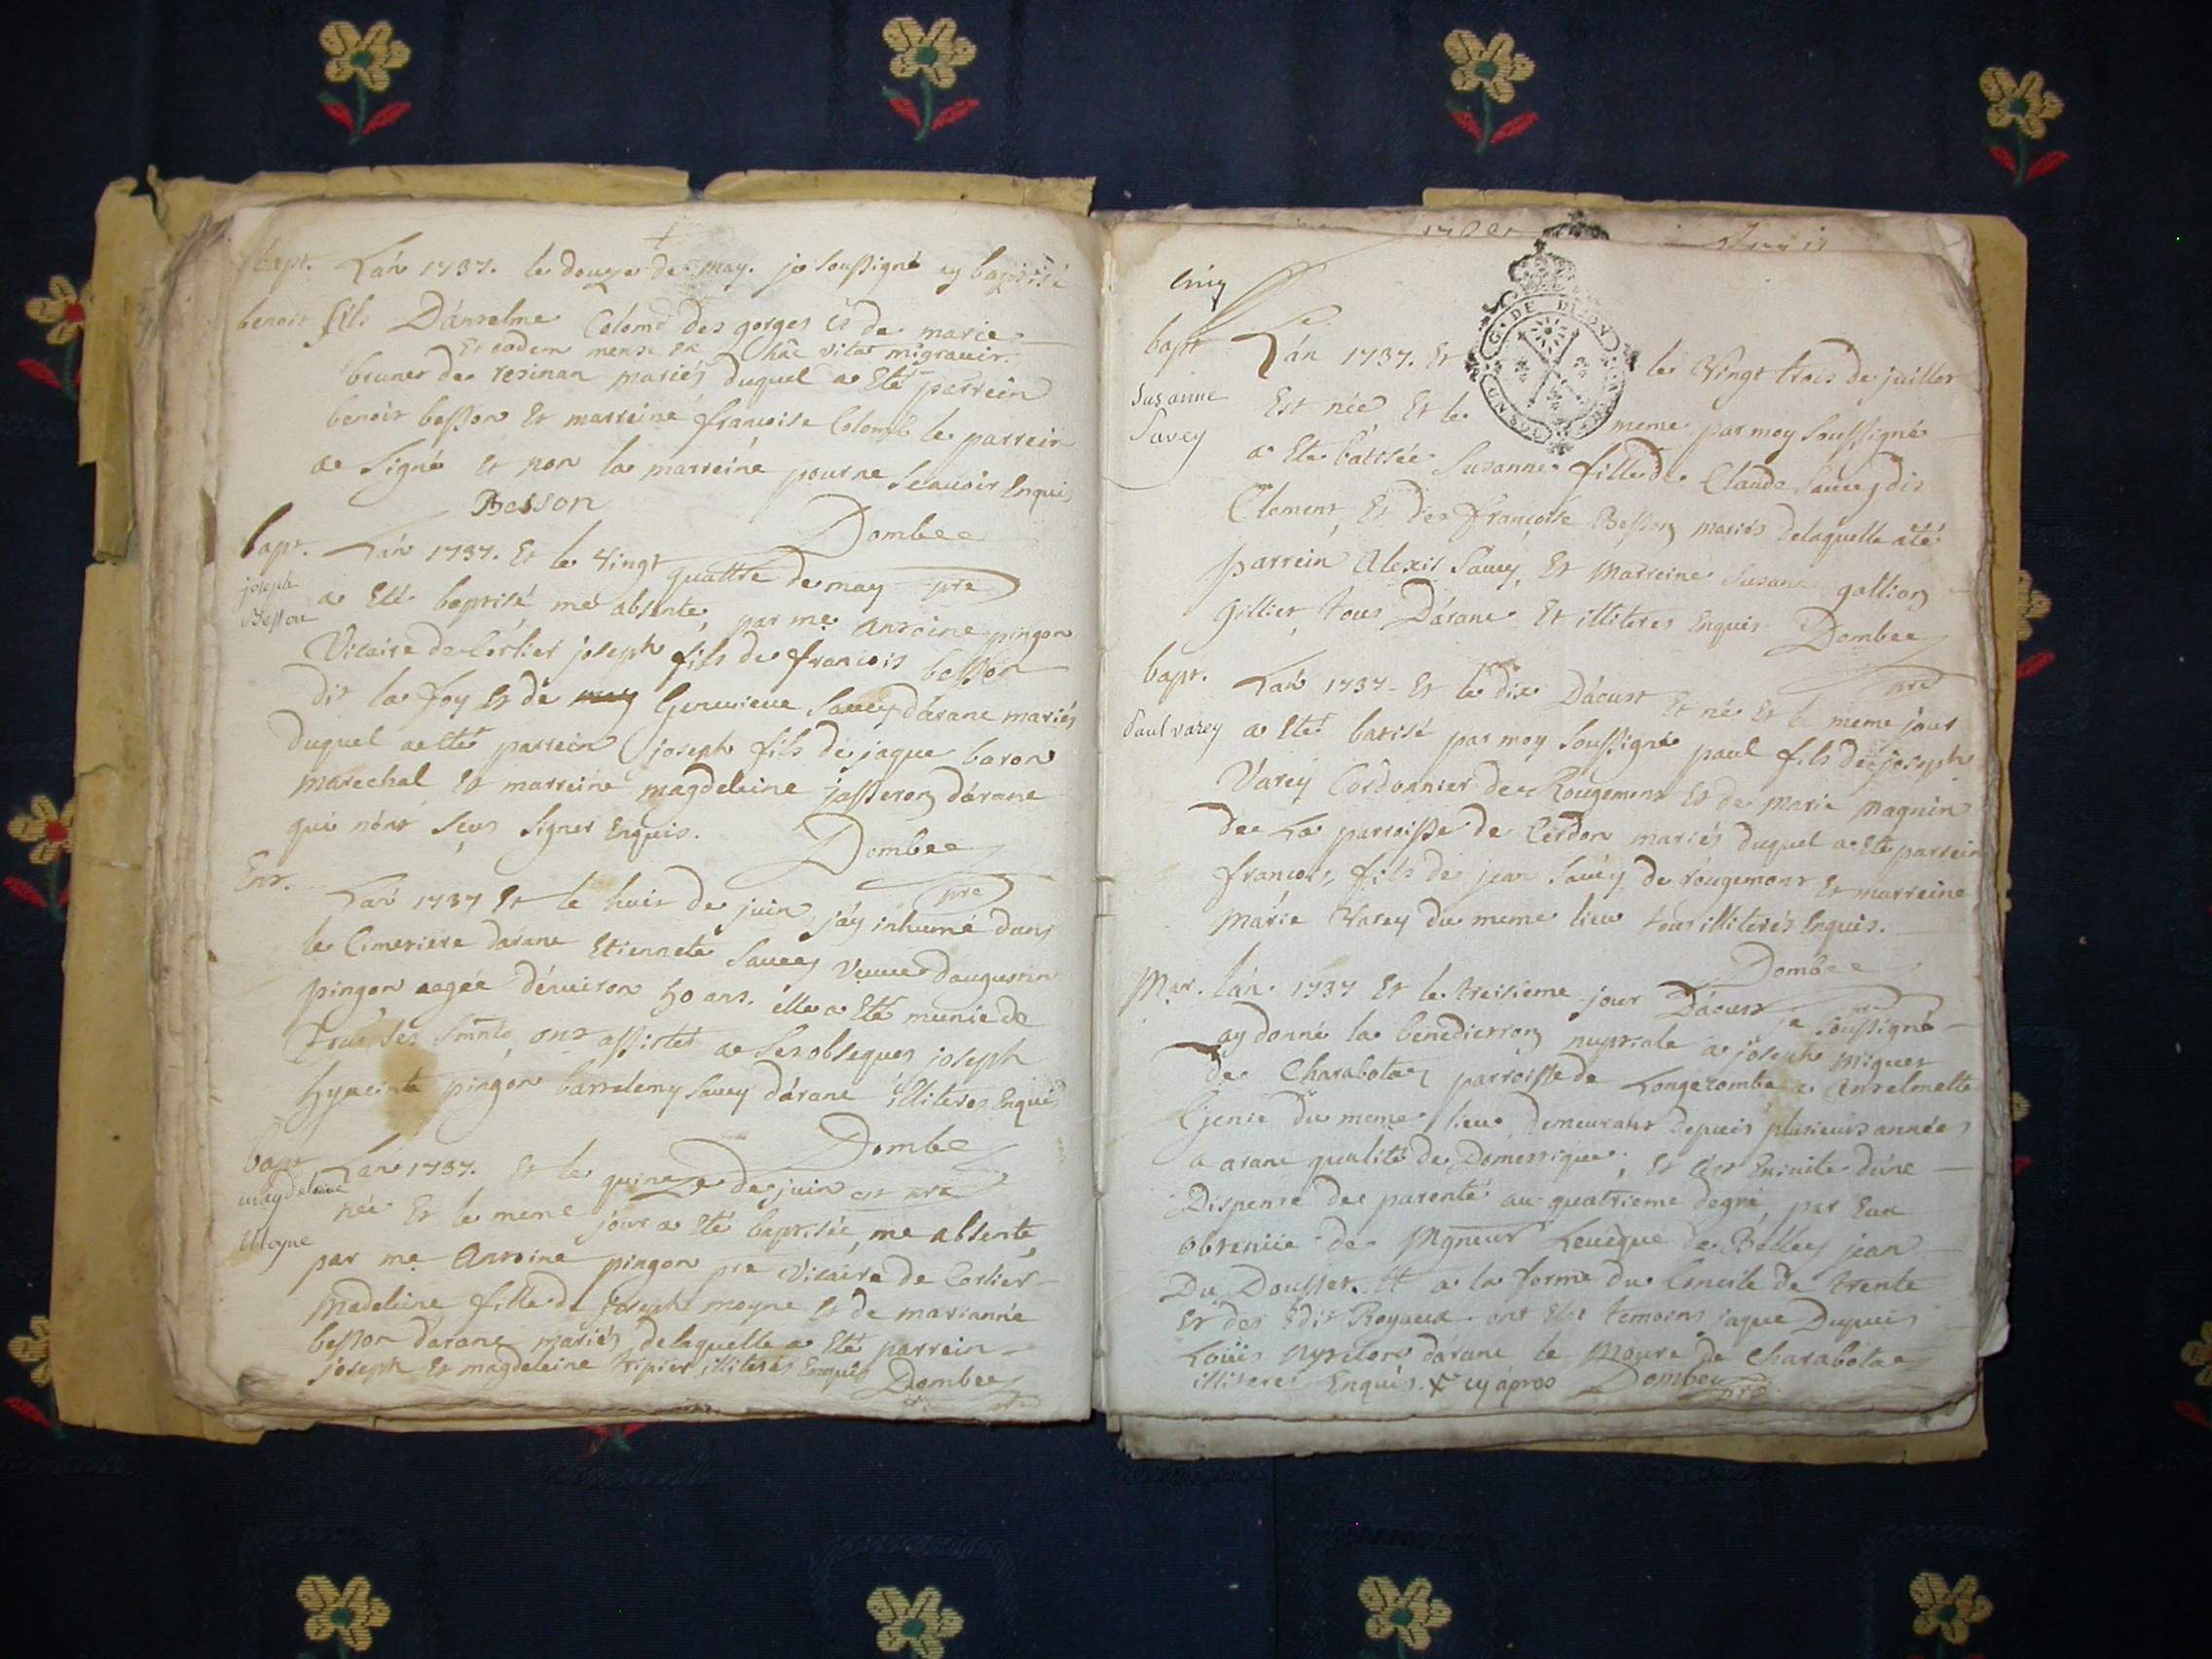 bapt. L'an 1737. le douze de may. je soussigné ay baptisé
benoit fils D'anselme Colomb des gorges et de marie
Et eodem mense ex hâc vitâ migravit.
brunet de resinan mariés duquel a Eté parrein
benoit besson Et marreine françoise Colomb le parrein
a Signé Et non la marreine pour ne Scavoir Enquis
Besson Dombee
pre
bapt. L'an 1737. Et le Vingt quattre de may
joseph
Besson
a Eté baptisé, me absente, par me Antoine pingon
Vicaire de Corlier joseph fils de francois besson
dit la foy Et de Genevieve Savey d'arane mariés
duquel a etté parrein joseph fils de jaque baron
marechal Et marreine magdeleine jasseron d'arane
qui n'ont sçus signer Enquis. Dombee
pre
Ent. L'an 1737 Et le huit de juin, j'ay inhumé dans
le Cimetiere d'arane Etiennete Savey Veuve d'augustin
pingon aagée d'environ 50 ans. elle a Eté munie de
Tous Ses Smnts ont assistés a Ses obseques joseph
hyacinte pingon barrelemy Savey d'arane illiteres Enquis
Dombee
pre
bapt L'an 1737. Et le quinze de juin est
magdeleine
Moyne
née Et le meme jour a Eté baptisée, me absente,
par me Antoine pingon pre Vicaire de Corlier
Madeleine fille de joseph moyne Et de marianne
besson d'arane mariés delaquelle a Eté parrein
joseph Et magdeleine tripier illiterés Enquis Dombee
pre
Cinq
G. DE DIJON
bapt L'an 1737. Et le Vingt trois de juillet
Susanne
Savey
Est née Et le meme par moy Soussigné
a Eté batisée Susanne fille de Claude Savey dit
Clement, Et de françoise Besson mariés delaquelle a été
parrein Alexis Savey, Et Marreine Susane gallion
Gillier, tous D'arane Et illiteres Enquis Dombee
pre
bapt. L'an 1737 - Et le dix D'aoust Et né Et le meme jour
Paul varey a Eté batisé par moy Soussigné paul fils de joseph
Varey Cordonnier de Rougemont Et de Marie magnin
de La parroisse de Cerdon mariés duquel a Eté parrein
françois, fils de jean Savey de rougemont Et marreine
Marie Varey du meme lieu tous illiterés Enquis.
Dombee
pre
Mar. L'an 1737 Et le treisieme jour D'aoust je Soussigné
ay donné la benediction nuptiale a joseph miguet
de Charabotae parroisse de Longecombe a Anselmette
du meme lieu demeurants depuis plusieurs années
a arane qualité de Domestique; Et c'est Ensuite d'une
Dispense de parenté au quatrieme degré, par Eux
obtenue de Mgneur L'eveque de Belley jean
Du Dousset. Et a la forme du Concile de trente
Et des Edit Royaux. ont Eté temoins jaque Dupuis
Loüis d'arane le Moyne de Charabotae
illiteres Enquis. cy apres Dombee
pre